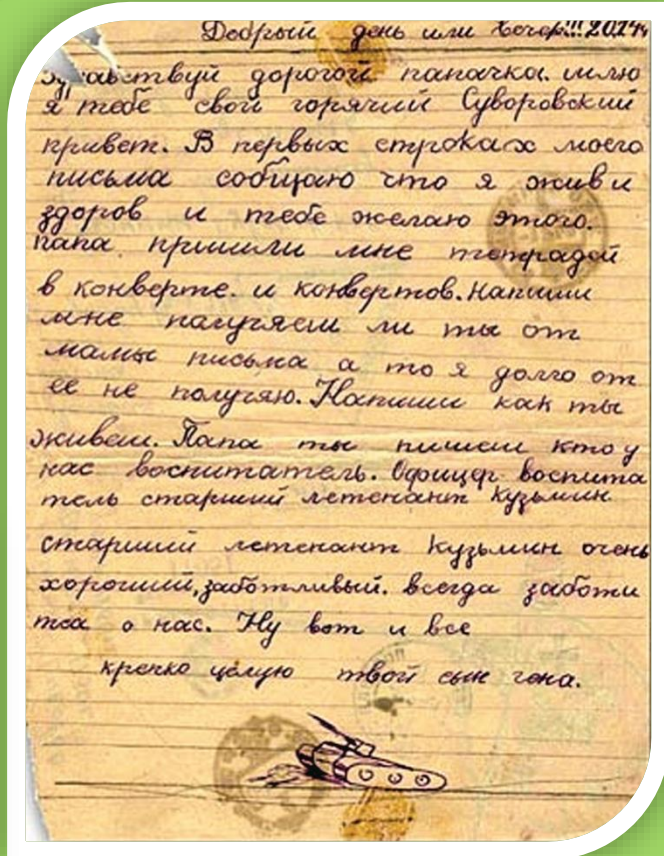 Добрый день или вечер!!! 20.I.44
Здравствуй дорогой папачка. шлю
я тебе свой горячий Суворовский
привет. В первых строках моего
письма собщаю что я жив и
здоров и тебе желаю этого.
папа пришли мне тетрадей
в конверте. и конвертов. Напиши
мне палучяеш ли ты от
мамы письма а то я долго от
ее не получяю. Напиши как ты
живеш. Папа ты пишеш кто у
нас воспитатель. Офицер воспита
тель старший летенант Кузьмин
старший летенант Кузьмин очень
хороший, заботливый. всегда заботи
тса о нас. Ну вот и все
крепко целую твой сын гена.